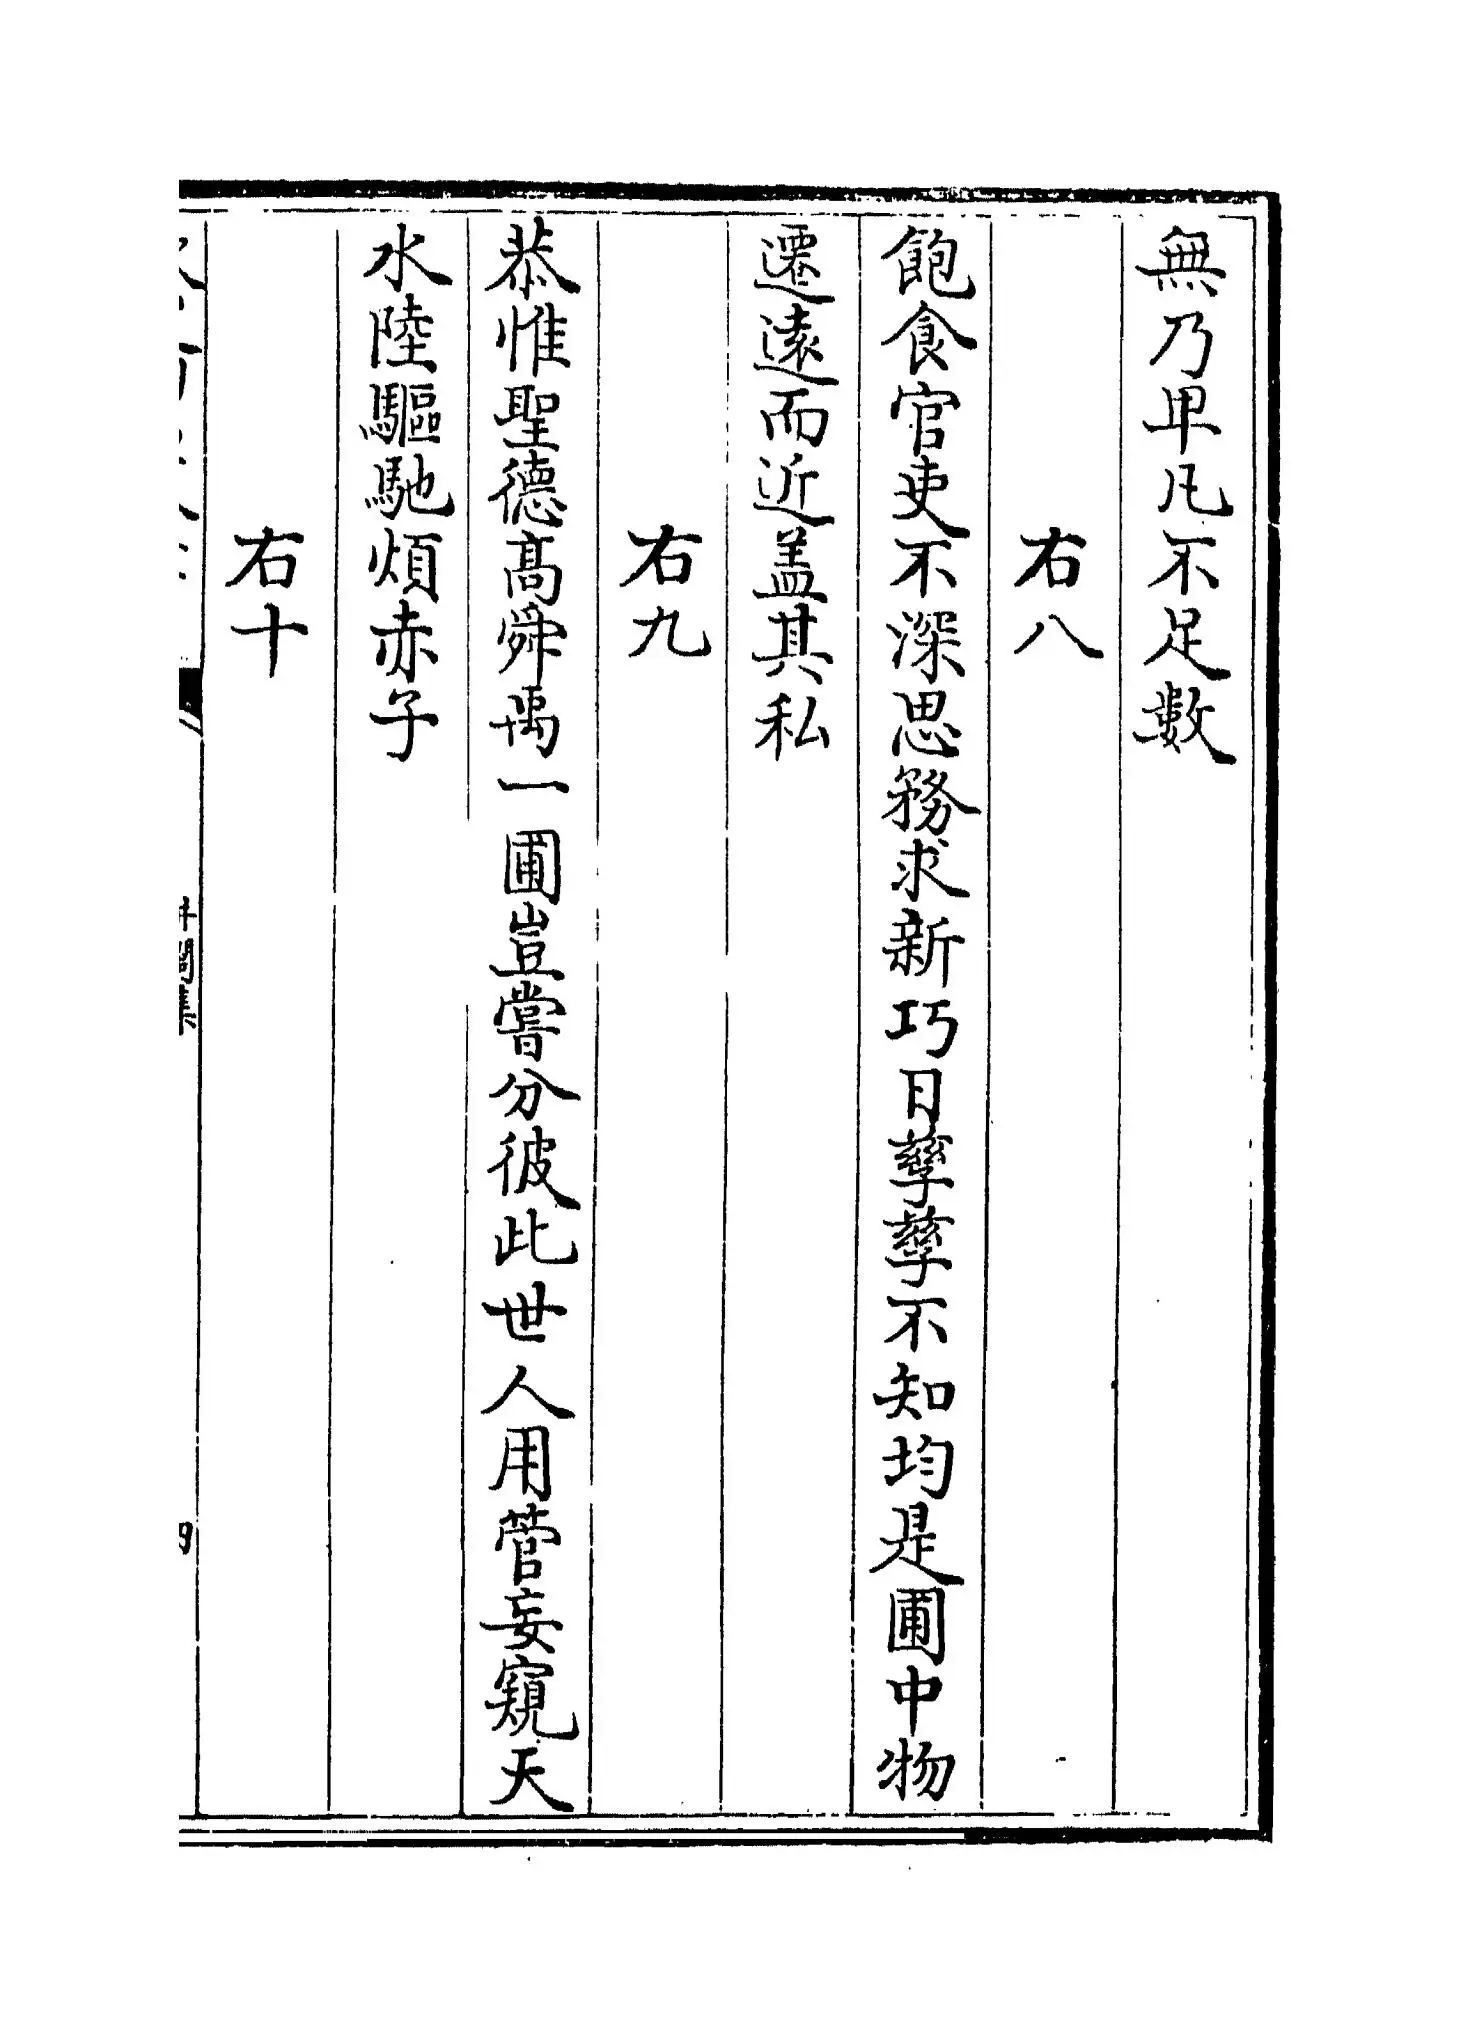 無乃卑凡不足數
右八
飽食官吏不深思務求新巧日孳孳不知均是圃中物
遷遠而近盖其私
右九
恭惟聖德髙舜禹一圃豈嘗分彼此世人用管妄窺天
水陸驅馳煩赤子
右十